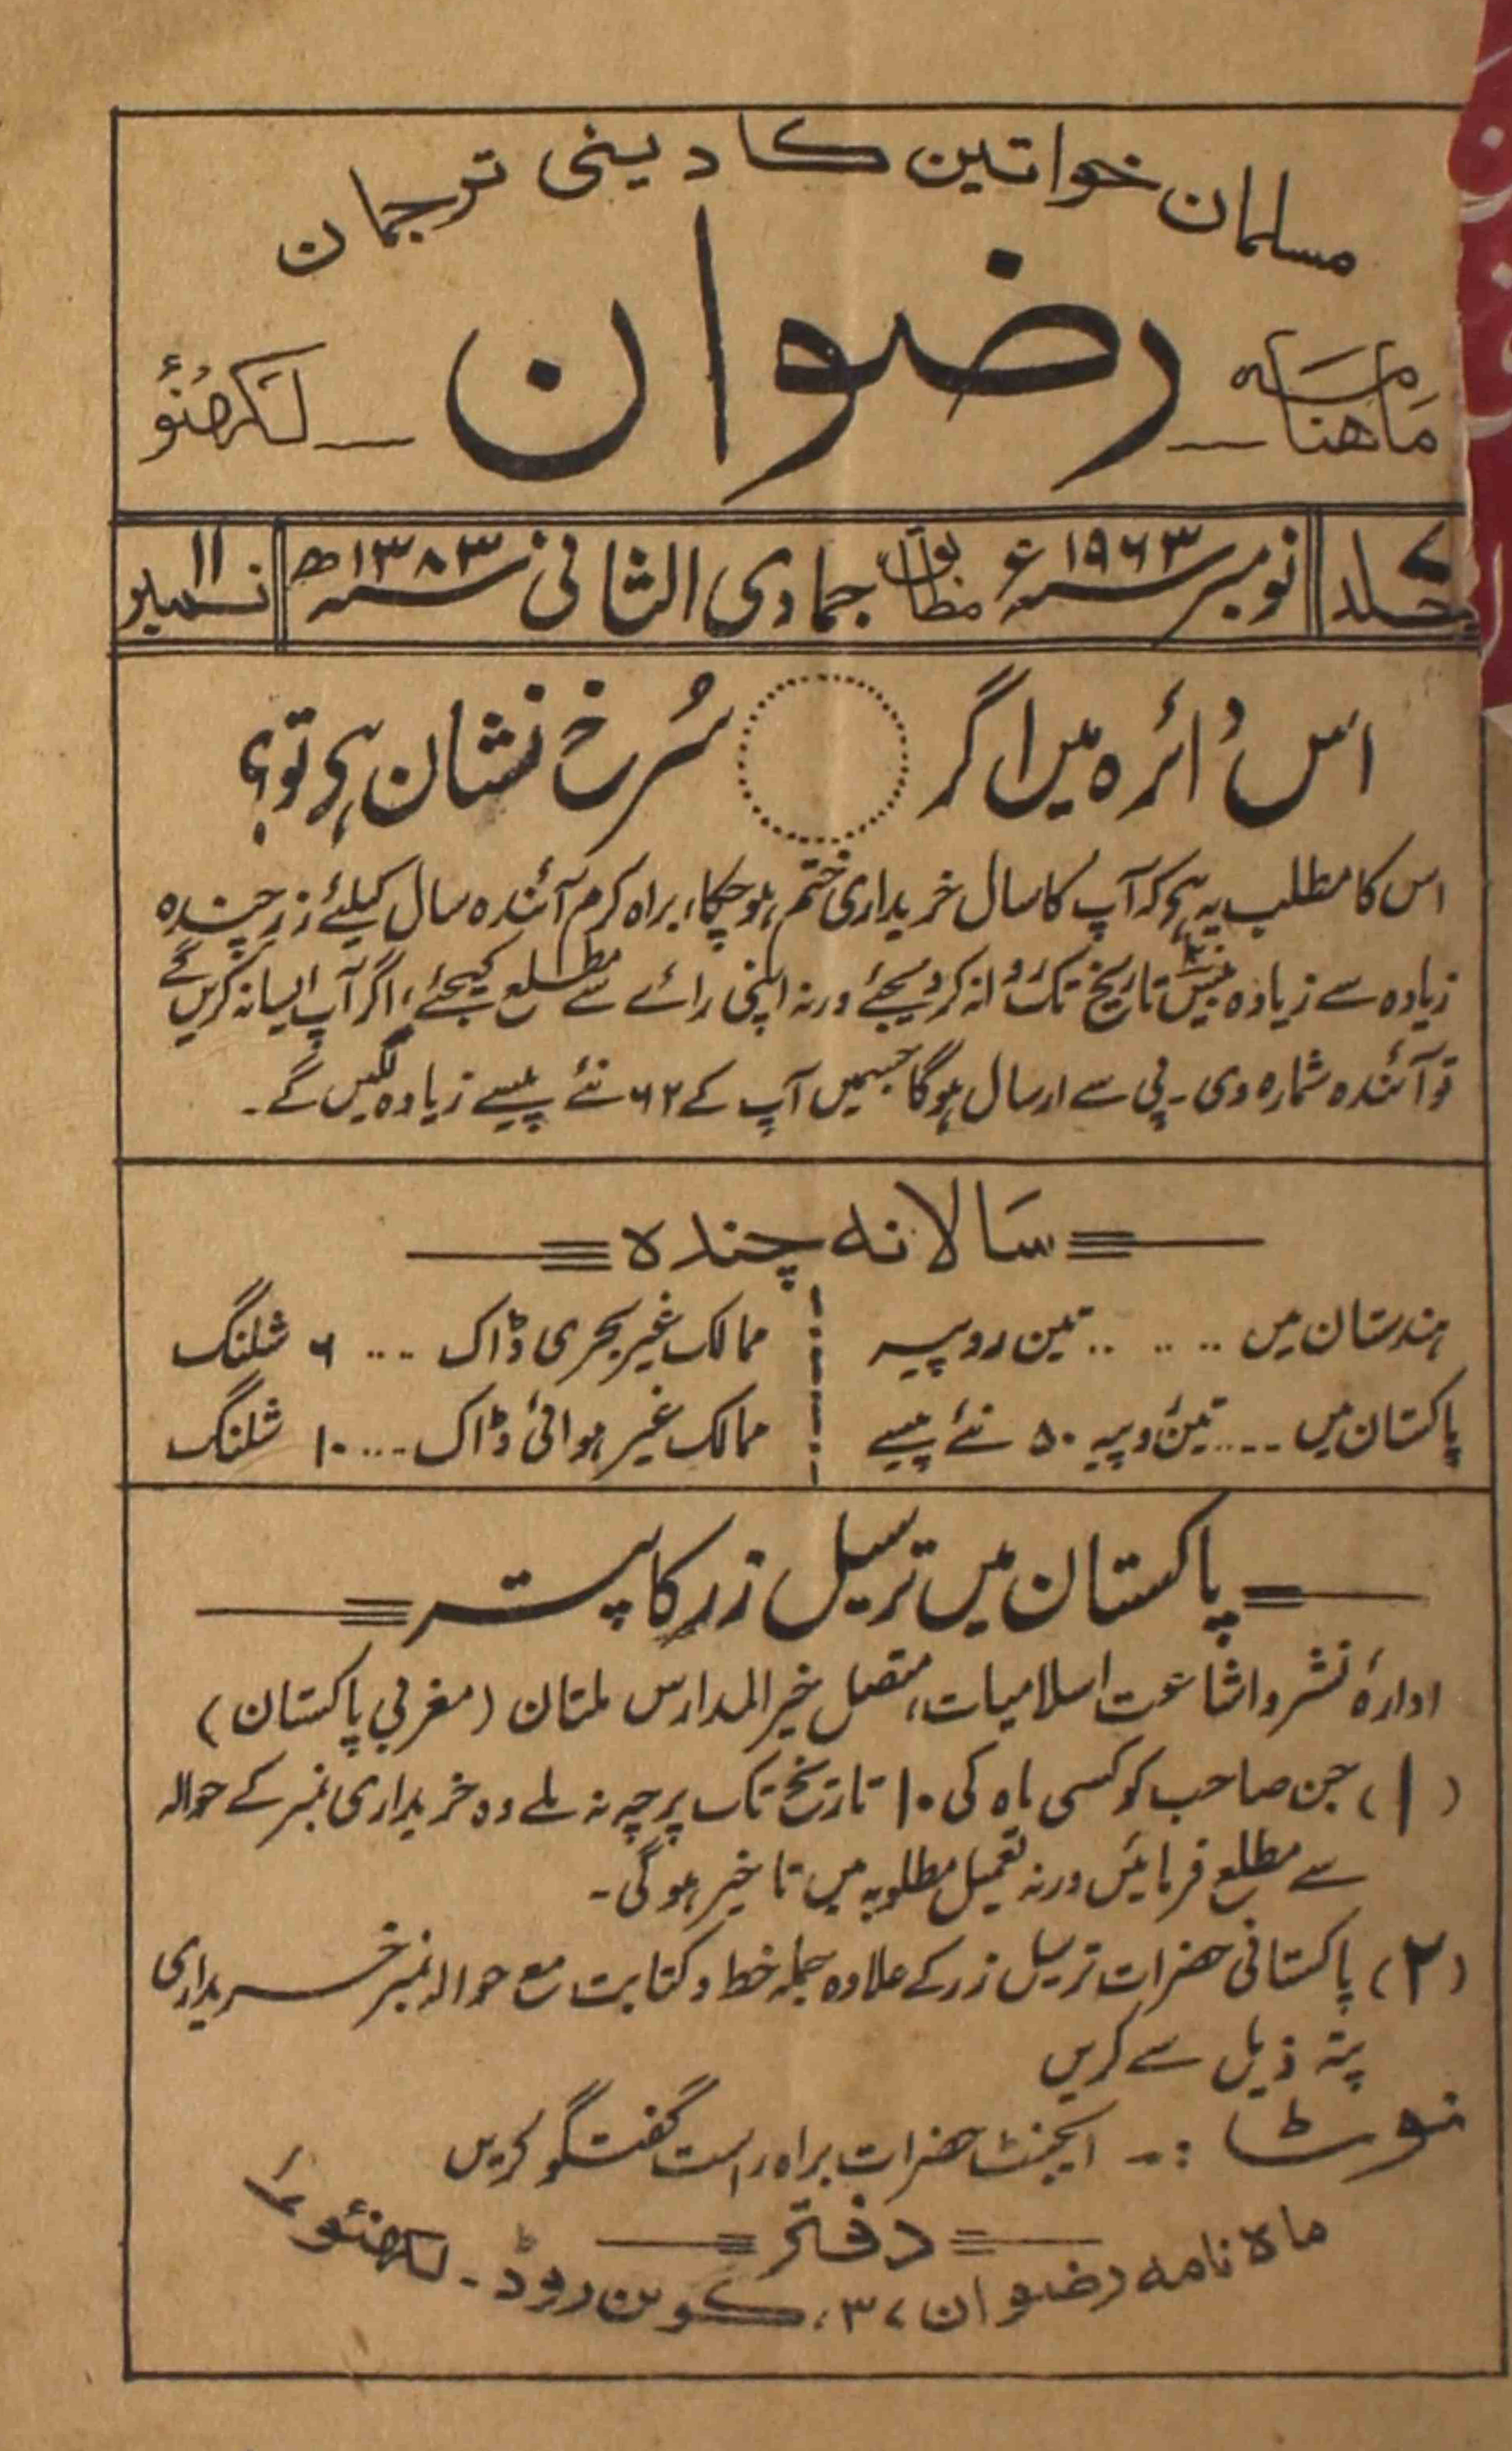 مسلمان خواتین کا دینی ترجمان
ماہنامہ رضوان لکھنؤ
جلد ۷ نومبر ۱۹۶۳ء مطابق جمادی الثانی ۱۳۸۳ھ نمبر ۱۱
اس دائرہ میں اگر سُرخ نشان ہو تو؟
اس کا مطلب یہ ہو کہ آپ کا سال خریداری ختم ہو چکا، براہ کرم آئندہ سال کیلئے زر چندہ
زیادہ سے زیادہ بیس تاریخ تک روانہ کر دیجئے ورنہ اپنی رائے سے مطلع کیجئے، اگر آپ ایسا نہ کریں گے
تو آئندہ شمارہ وی۔ پی سے ارسال ہوگا جسمیں آپ کے ۶۲ نئے پیسے زیادہ لگیں گے۔
سالانہ چندہ
ہندستان میں .. .. .. تین روپیہ
پاکستان میں .... تین روپیہ ۵۰ نئے پیسے
ممالک غیر بحری ڈاک .... ۶ شلنگ
ممالک غیر ہوائی ڈاک .... ۱۰ شلنگ
پاکستان میں ترسیل زر کا پتہ
ادارۂ نشر و اشاعت اسلامیات، متصل خیر المدارس ملتان (مغربی پاکستان)
(۱) جن صاحب کو کسی ماہ کی ۱۰ تاریخ تک پرچہ نہ ملے وہ خریداری نمبر کے حوالہ
سے مطلع فرمائیں ورنہ تعمیل مطلوبہ میں تاخیر ہوگی۔
(۲) پاکستانی حضرات ترسیل زر کے علاوہ جملہ خط و کتابت مع حوالہ نمبر خریداری
پتہ ذیل سے کریں
نوٹ :۔ ایجنٹ حضرات براہ راست گفتگو کریں
دفتر
ماہ نامہ رضوان ۳۷، گوئن روڈ۔ لکھنؤ